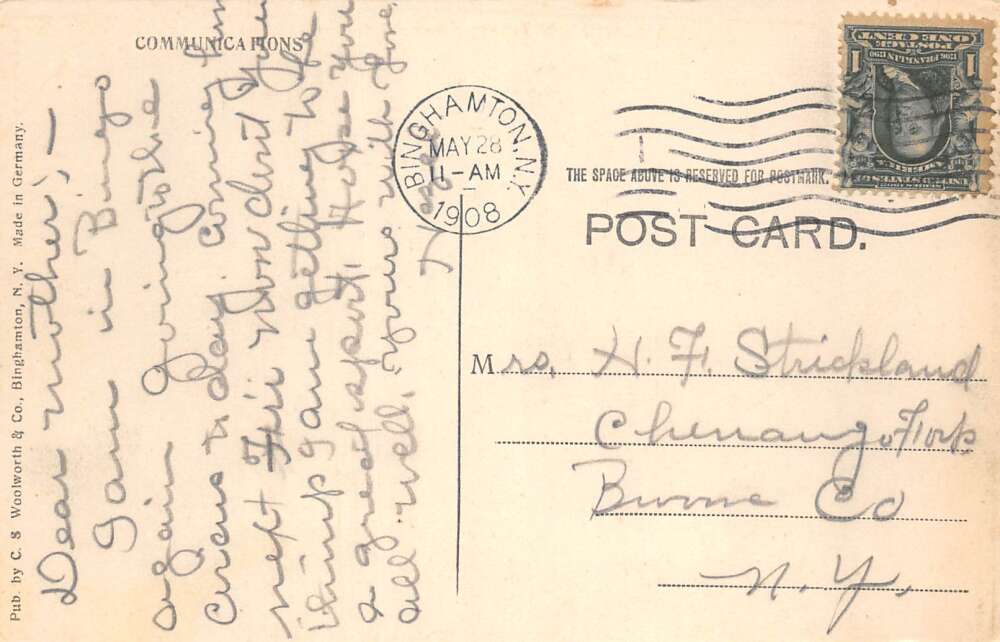 COMMUNICATIONS
Pub. by C. S Woolworth & Co., Binghamton, N. Y. Made in Germany.
Dear Mother; —
I am in Bingo
again Going to the
Circus to day. Coming home
next Fri. Now don't you
think I am getting to be
a great sport. Hope you
all well. Yours with love
BINGHAMTON, N.Y.
MAY 28
11-AM
1908
POSTAGE
ONE CENT
FRANKLIN
1
1
UNITED STATES OF AMERICA
THE SPACE ABOVE IS RESERVED FOR POSTMARK.
POST CARD.
Mrs. H. F. Strickland
Chenango Fork
Broome Co
N. Y.